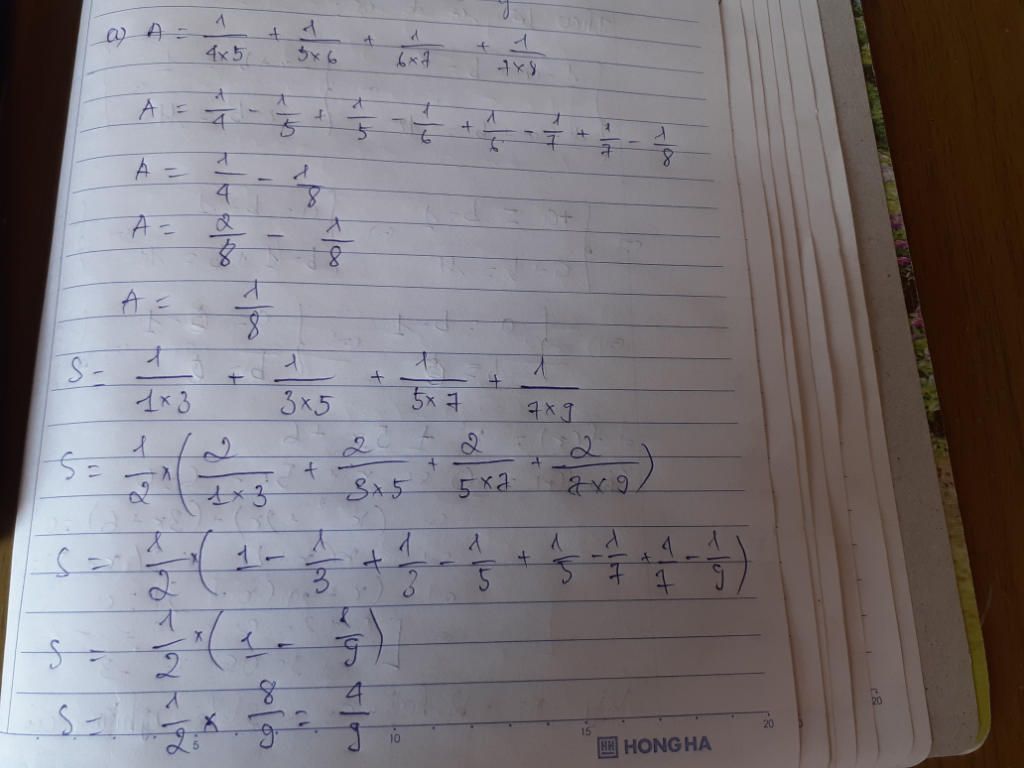 a) A = 1/4×5 + 1/5×6 + 1/6×7 + 1/7×8
A = 1/4 - 1/5 + 1/5 - 1/6 + 1/6 - 1/7 + 1/7 - 1/8
A = 1/4 - 1/8
A = 2/8 - 1/8
A = 1/8
S = 1/1×3 + 1/3×5 + 1/5×7 + 1/7×9
S = 1/2 × (2/1×3 + 2/3×5 + 2/5×7 + 2/7×9)
S = 1/2 × (1 - 1/3 + 1/3 - 1/5 + 1/5 - 1/7 + 1/7 - 1/9)
S = 1/2 × (1 - 1/9)
S = 1/2 × 8/9 = 4/9
5 10 15 20
HH HONG HA
20